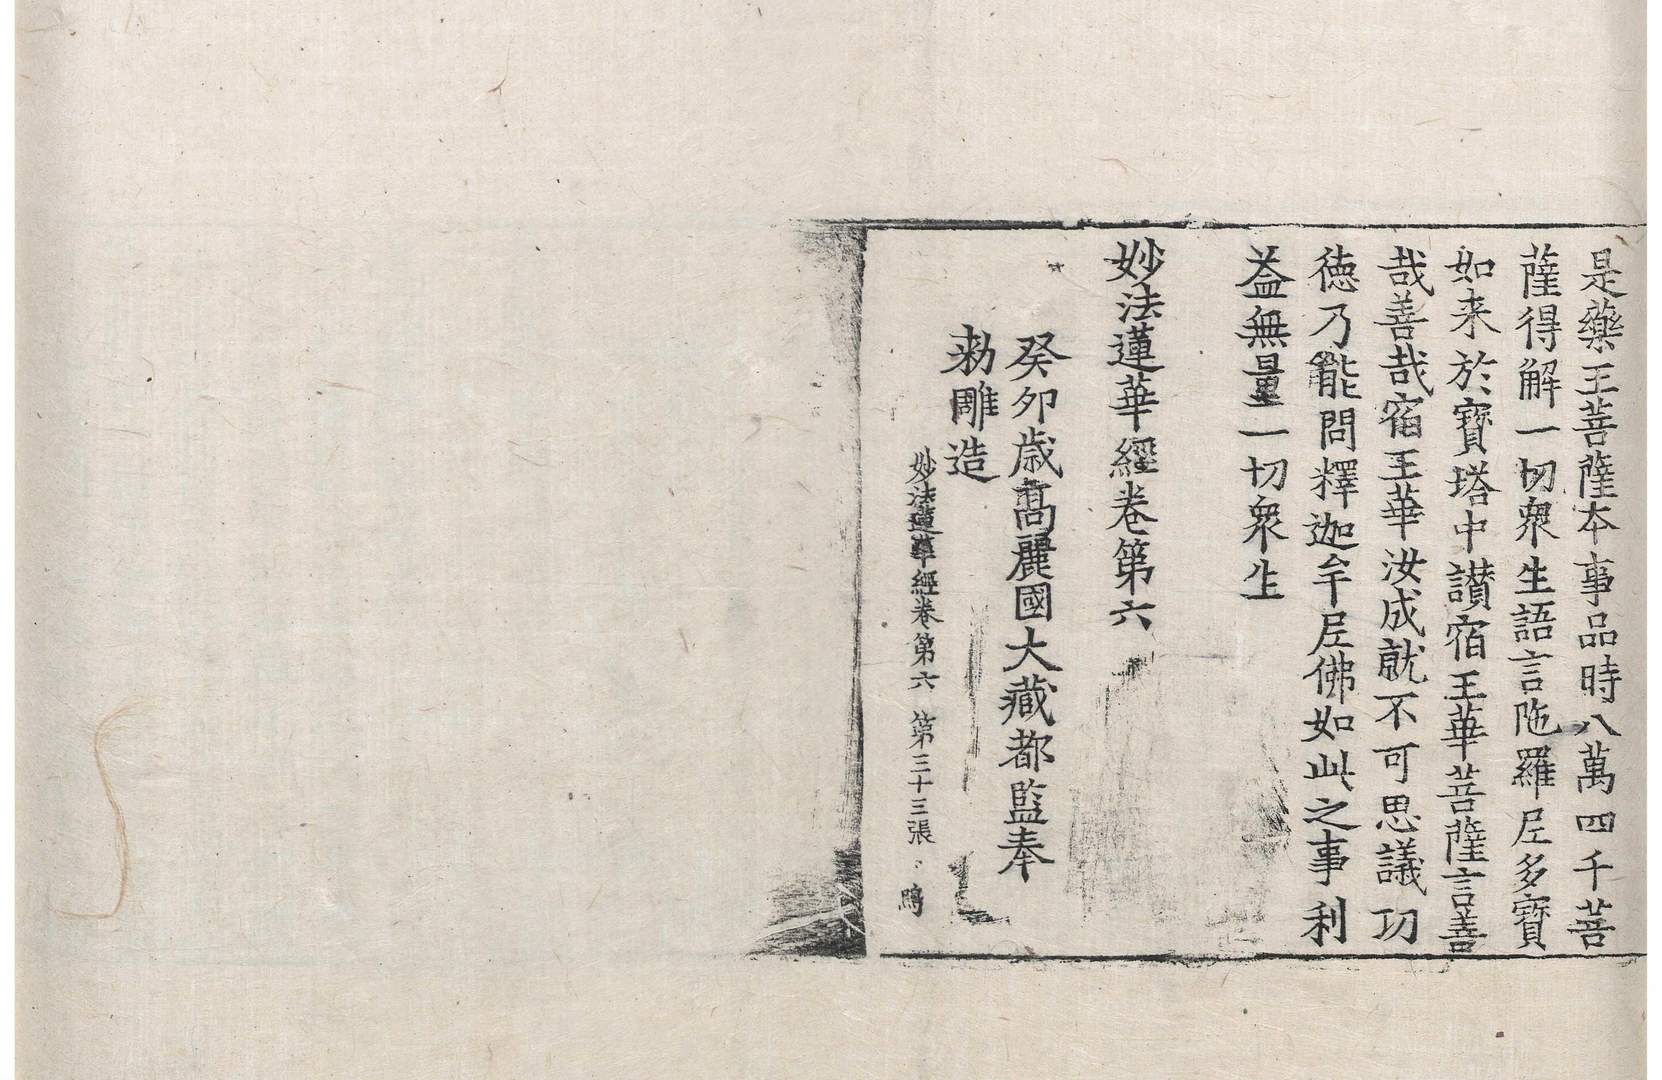 是藥王菩薩本事品時八萬四千菩
薩得解一切衆生語言陁羅尼多寶
如来於寶塔中讃宿王華菩薩言善
哉善哉宿王華汝成就不可思議功
徳乃能問釋迦牟尼佛如此之事利
益無量一切衆生
妙法蓮華經卷第六
癸卯歳高麗國大藏都監奉
勑雕造
妙法蓮華經卷第六 第三十三張 鳴